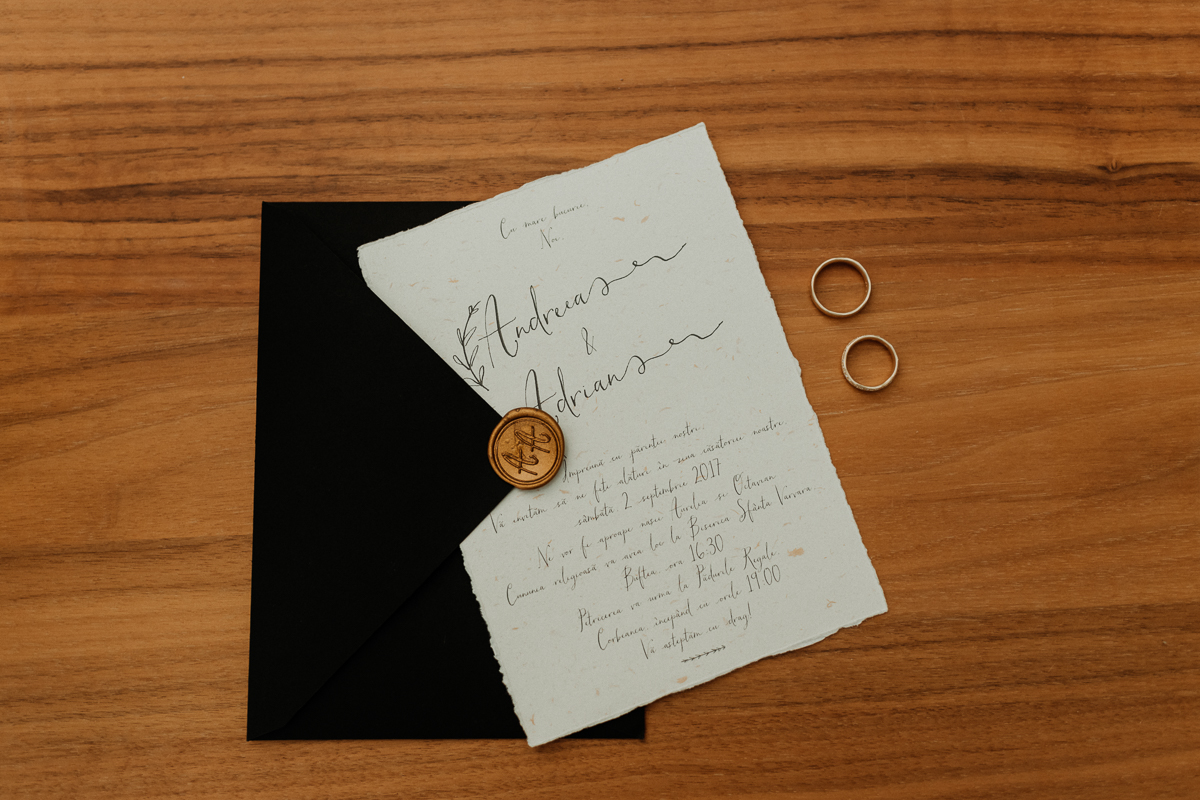 Cu mare bucurie,
Noi,
Andreea
&
Adrian
Împreună cu părinții noștri,
Vă invităm să ne fiți alături în ziua căsătoriei noastre,
sâmbătă 2 septembrie 2017
Ne vor fi aproape nașii Aurelia si Octavian
Cununia religioasă va avea loc la Biserica Sfânta Varvara
Buftea, ora 16:30
Petrecerea va urma la Pădurile Regale
Corbeanca începând cu orele 19:00
Vă așteptăm cu drag!
AA